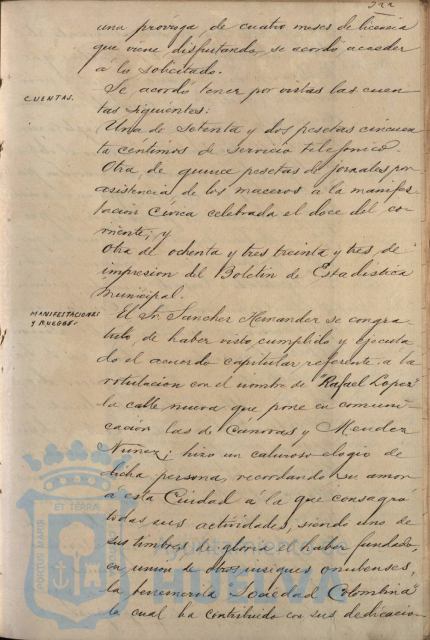 una prórroga, de cuatro meses de licencia
que viene disfrutando, se acordó acceder
a lo solicitado.
CUENTAS.
Se acordó tener por vistas las cuen
tas siguientes:
Una de setenta y dos pesetas cincuen
ta céntimos de servicio telefónico
Otra de quince pesetas de jornales por
asistencia de los maceros a la manifes
tación Cívica celebrada el doce del co-
rriente; y
otra de ochenta y tres treinta y tres de
impresion del Boletin de Estadistica
Municipal.
MANIFESTACIONES
Y RUEGOS.
El Sr. Sanchez Hernandez se congra-
tuló, de haber visto cumplido y ejecuta-
do el acuerdo capitular referente a la
rotulación con el nombre de "Rafael Lopez"
la calle nueva que pone en comuni-
cación las de Canovas y Mendez
Nuñez; hizo un caluroso elogio de
dicha persona, recordando su amor
a esta Ciudad á la que consagró
todas sus actividades, siendo uno de
sus timbres de gloria el haber fundado,
en union de otros insignes onubenses,
la benemerita Sociedad Colombina
la cual ha contribuido con sus dedicacion
ET TERRAE
PORTUS MARIS
Ayuntamiento de
HUELVA